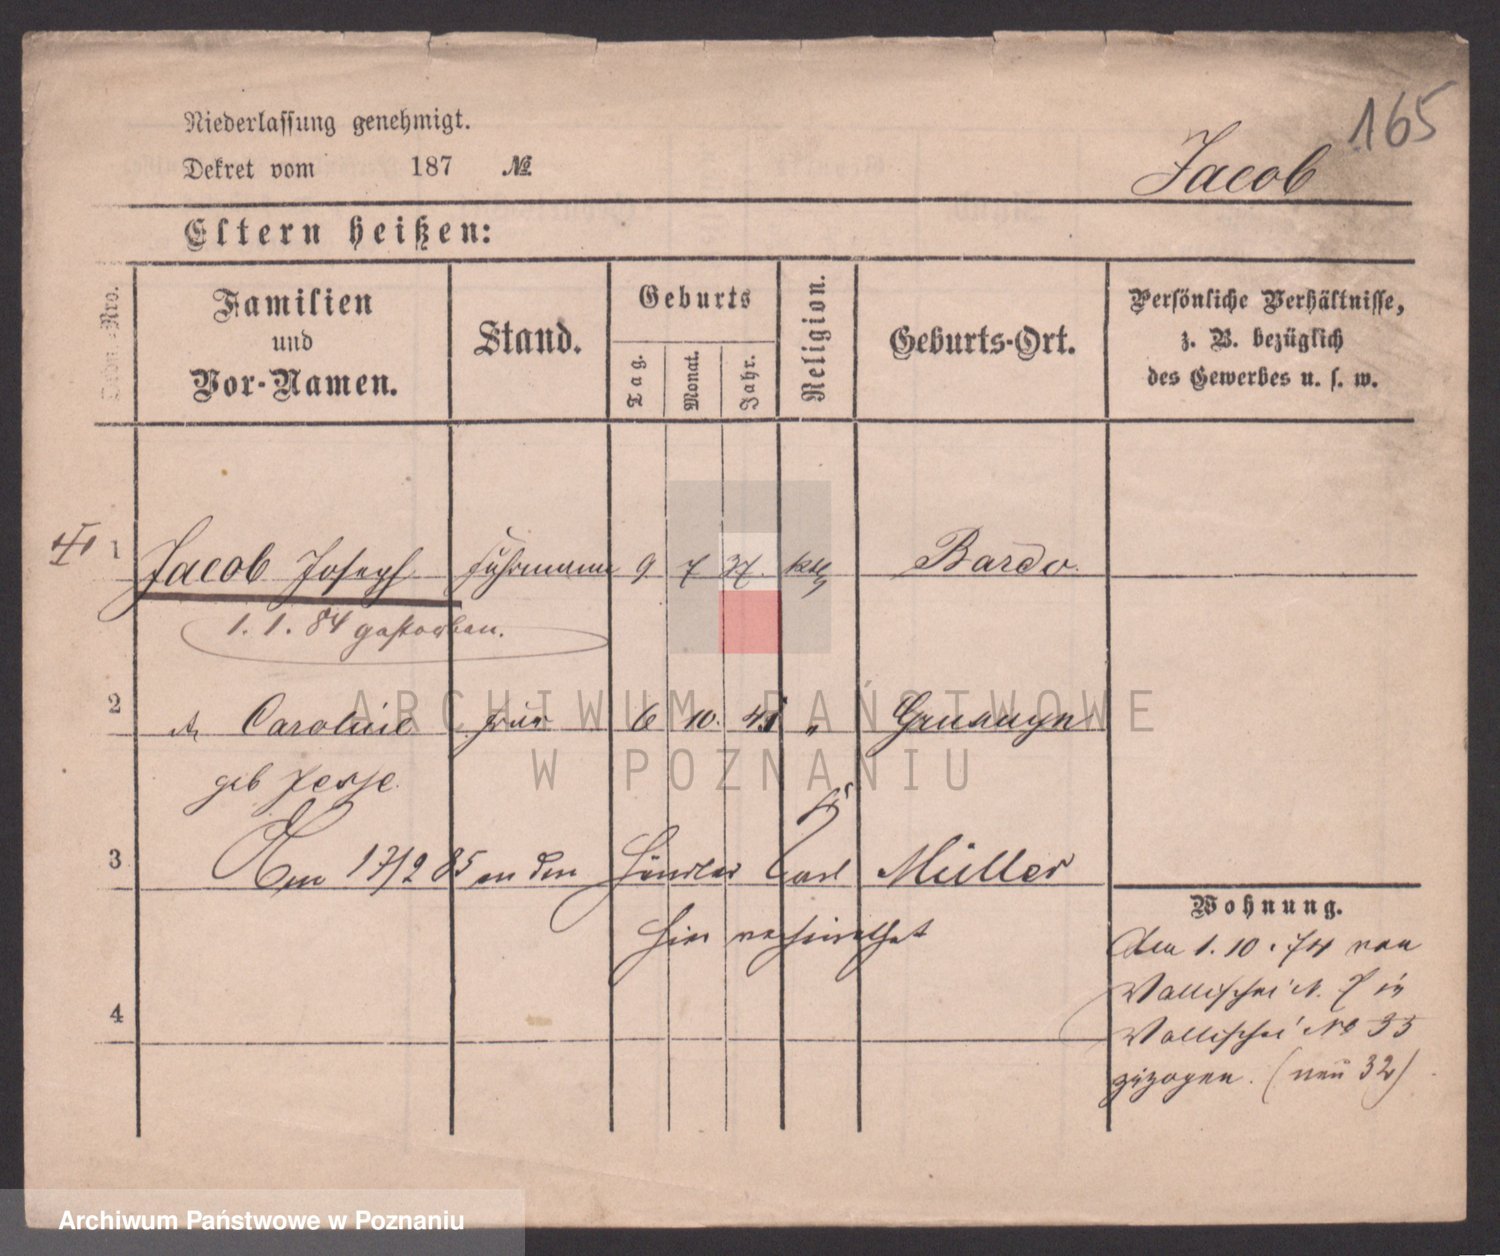 165
Niederlassung genehmigt.
Dekret vom 187 №
Jacob
Eltern heißen:
Familien und Vor-Namen.
Stand.
Geburts
Tag.
Monat.
Jahr.
Religion.
Geburts-Ort.
Persönliche Verhältnisse,
z. B. bezüglich
des Gewerbes u. s. w.
1 Jacob Joseph Fuhrmann 9 7 37. kth Bardo.
1. 1. 84 gestorben.
2 Caroline Frau 6 10. 45 " Grunzyn
geb Jeske.
3 Am 17/2 85 an den Händler Carl Müller
hier verheirathet
Wohnung.
Am 1. 10. 74 von
Wallischei N. 7 in
Wallischei No 33
zugezogen. (neu 32)
4
ARCHIWUM PAŃSTWOWE
W POZNANIU
Archiwum Państwowe w Poznaniu